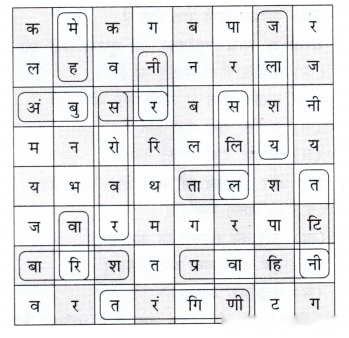 क मे क ग ब पा ज र
ल ह व नी न र ला ज
अं बु स र ब स श नी
म न रो रि ल लि य य
य भ व थ ता ल श त
ज वा र म ग र पा टि
बा रि श त प्र वा हि नी
व र त रं गि णी ट ग